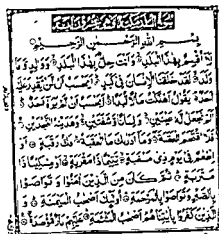 بسم الله الرحمن الرحيم
لا أقسم بهذا البلد وأنت حل بهذا البلد ووالد وما
ولد لقد خلقنا الإنسان في كبد أيحسب أن لن يقدر عليه
أحد يقول أهلكت مالا لبدا أيحسب أن لم يره أحد
ألم نجعل له عينين ولسانا وشفتين وهديناه النجدين
فلا اقتحم العقبة وما أدراك ما العقبة فك رقبة أو
إطعام في يوم ذي مسغبة يتيما ذا مقربة أو مسكينا ذا
متربة ثم كان من الذين آمنوا وتواصوا
بالصبر وتواصوا بالمرحمة أولئك أصحاب الميمنة و
الذين كفروا بآياتنا هم أصحاب المشأمة عليهم نار مؤصدة